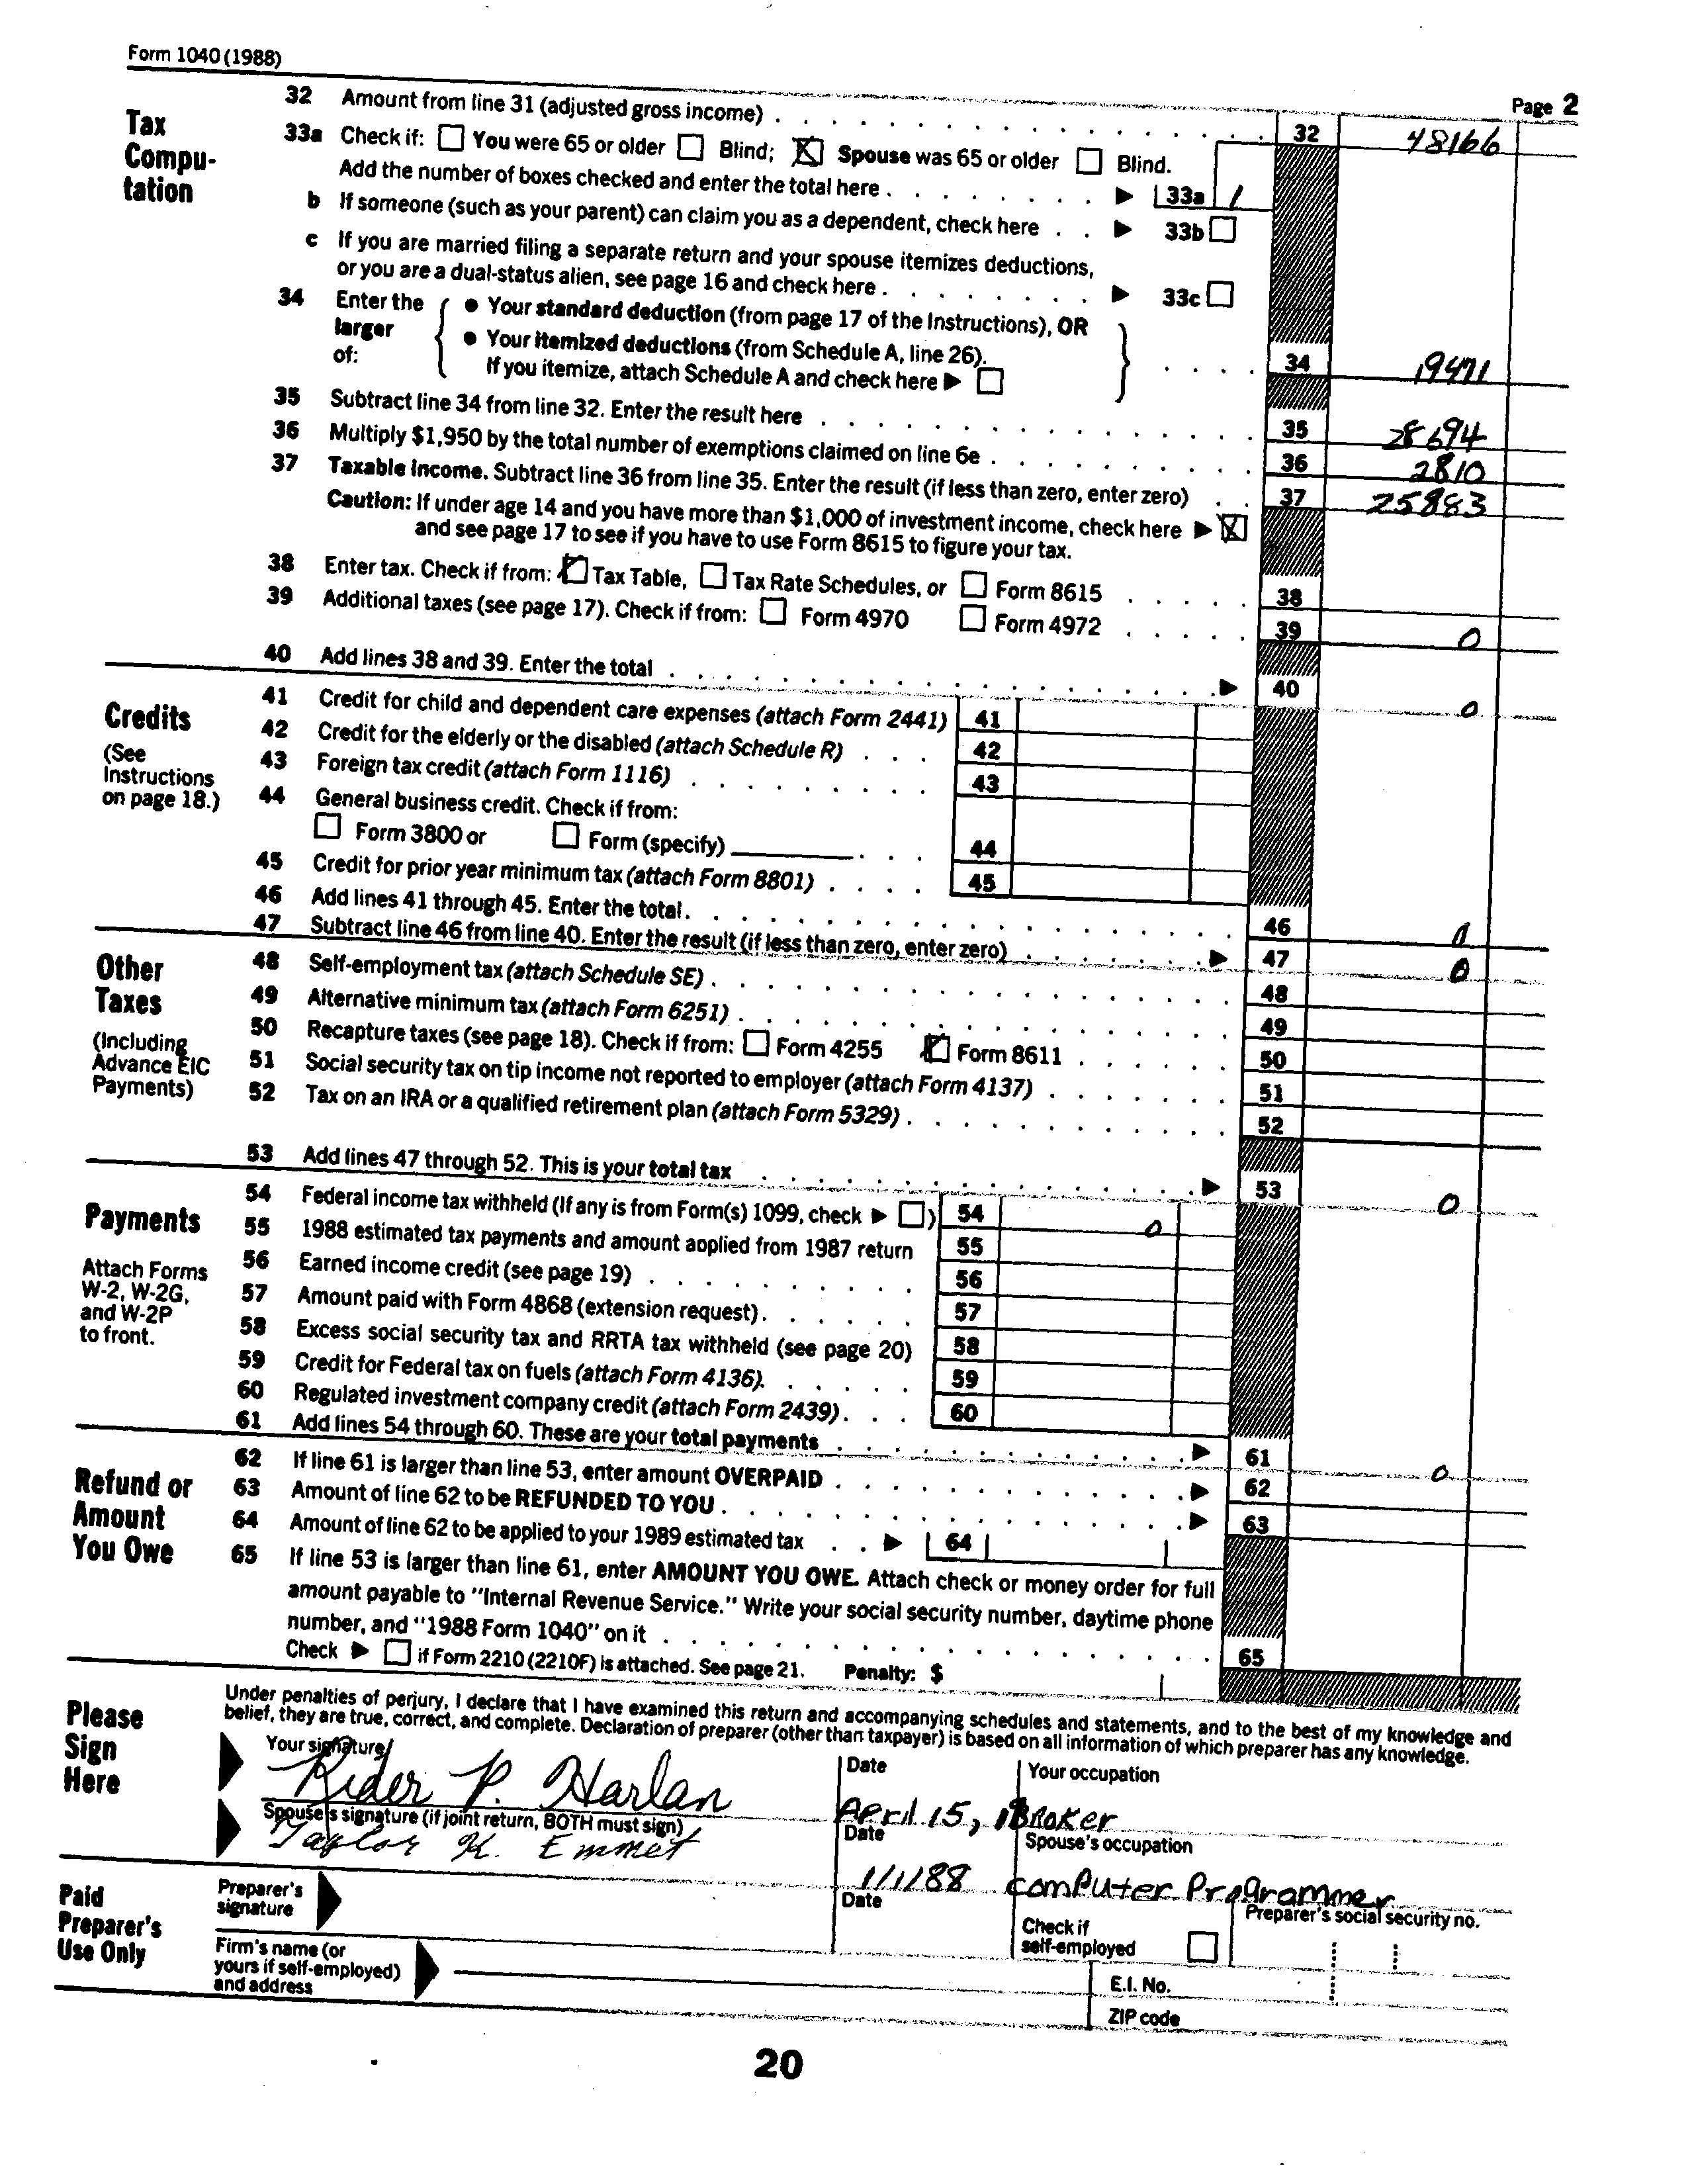 Form 1040 (1988)
Page 2
Tax Compu-tation
32 Amount from line 31 (adjusted gross income) 32 48166
33a Check if: You were 65 or older Blind; X Spouse was 65 or older Blind.
Add the number of boxes checked and enter the total here 33a 1
b If someone (such as your parent) can claim you as a dependent, check here 33b
c If you are married filing a separate return and your spouse itemizes deductions,
or you are a dual-status alien, see page 16 and check here 33c
34 Enter the larger of:
• Your standard deduction (from page 17 of the Instructions), OR
• Your itemized deductions (from Schedule A, line 26).
If you itemize, attach Schedule A and check here 34 19471
35 Subtract line 34 from line 32. Enter the result here 35 28694
36 Multiply $1,950 by the total number of exemptions claimed on line 6e 36 2810
37 Taxable income. Subtract line 36 from line 35. Enter the result (if less than zero, enter zero) 37 25883
Caution: If under age 14 and you have more than $1,000 of investment income, check here X
and see page 17 to see if you have to use Form 8615 to figure your tax.
38 Enter tax. Check if from: X Tax Table, Tax Rate Schedules, or Form 8615 38
39 Additional taxes (see page 17). Check if from: Form 4970 Form 4972 39 0
40 Add lines 38 and 39. Enter the total 40 0
Credits
(See Instructions on page 18.)
41 Credit for child and dependent care expenses (attach Form 2441) 41
42 Credit for the elderly or the disabled (attach Schedule R) 42
43 Foreign tax credit (attach Form 1116) 43
44 General business credit. Check if from:
Form 3800 or Form (specify) 44
45 Credit for prior year minimum tax (attach Form 8801) 45
46 Add lines 41 through 45. Enter the total. 46 0
47 Subtract line 46 from line 40. Enter the result (if less than zero, enter zero) 47 0
Other Taxes
(Including Advance EIC Payments)
48 Self-employment tax (attach Schedule SE) 48
49 Alternative minimum tax (attach Form 6251) 49
50 Recapture taxes (see page 18). Check if from: Form 4255 X Form 8611 50
51 Social security tax on tip income not reported to employer (attach Form 4137) 51
52 Tax on an IRA or a qualified retirement plan (attach Form 5329) 52
53 Add lines 47 through 52. This is your total tax 53 0
Payments
Attach Forms W-2, W-2G, and W-2P to front.
54 Federal income tax withheld (If any is from Form(s) 1099, check ) 54 0
55 1988 estimated tax payments and amount applied from 1987 return 55
56 Earned income credit (see page 19) 56
57 Amount paid with Form 4868 (extension request) 57
58 Excess social security tax and RRTA tax withheld (see page 20) 58
59 Credit for Federal tax on fuels (attach Form 4136) 59
60 Regulated investment company credit (attach Form 2439) 60
61 Add lines 54 through 60. These are your total payments 61 0
Refund or Amount You Owe
62 If line 61 is larger than line 53, enter amount OVERPAID 62
63 Amount of line 62 to be REFUNDED TO YOU 63
64 Amount of line 62 to be applied to your 1989 estimated tax 64
65 If line 53 is larger than line 61, enter AMOUNT YOU OWE. Attach check or money order for full
amount payable to "Internal Revenue Service." Write your social security number, daytime phone
number, and "1988 Form 1040" on it 65
Check if Form 2210 (2210F) is attached. See page 21. Penalty: $
Please Sign Here
Under penalties of perjury, I declare that I have examined this return and accompanying schedules and statements, and to the best of my knowledge and
belief, they are true, correct, and complete. Declaration of preparer (other than taxpayer) is based on all information of which preparer has any knowledge.
Your signature Date Your occupation
Rider P. Harlan April 15, 1 Broker
Spouse's signature (if joint return, BOTH must sign) Date Spouse's occupation
Taylor K. Emmet 1/1/88 computer Programmer
Paid Preparer's Use Only
Preparer's signature Date Check if self-employed Preparer's social security no.
Firm's name (or yours if self-employed) and address
E.I. No.
ZIP code
20